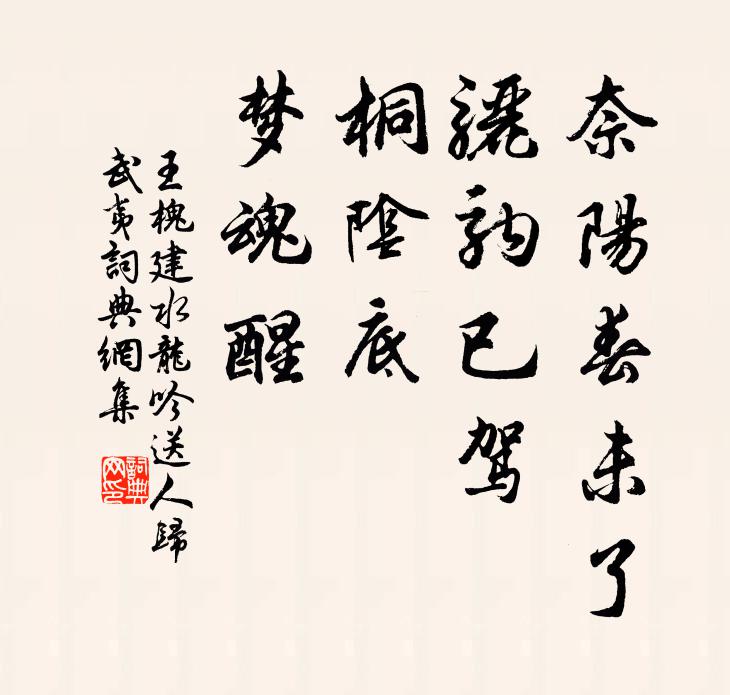 奈陽春未了
驪駒已驾
桐陰底
梦魂醒
王槐建水龍吟送人歸
武夷詞典網集
詞典网印